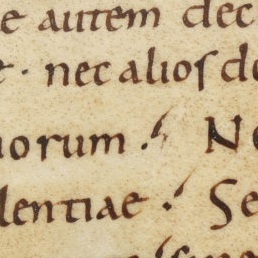 e autem dec
t · nec alios do
uorum . No
lentiae . Se